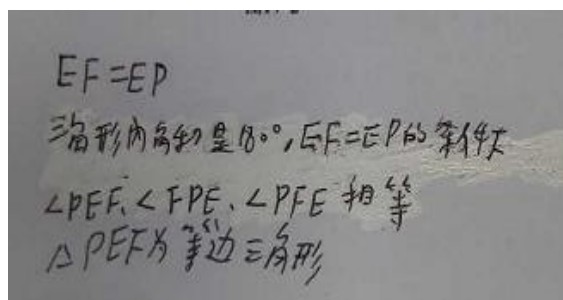 EF=EP
三角形内角和是180°,EF=EP的条件下
∠PEF、∠FPE、∠PFE相等
△PEF为等边三角形